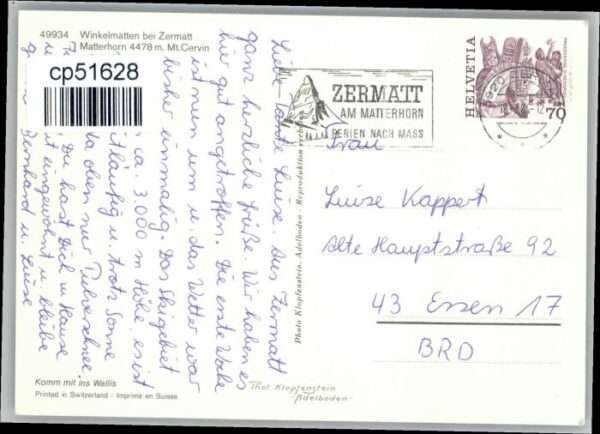 49934 Winkelmatten bei Zermatt
Matterhorn 4478 m. Mt. Cervin
cp51628
Liebe Tante Luise. Aus Zermatt
ganz herzliche Grüße. Wir haben es
hier gut angetroffen. Die erste Woche
ist nun um u. das Wetter war
bisher einmalig. Das Skigebiet
ca. 3.000 m Höhe, es ist
u. trotz Sonne
da oben nur Pulverschnee
Du hast Dich zu Hause
eingewöhnt u. bleibe
Bernhard u. Luise
Komm mit ins Wallis
Printed in Switzerland - Imprimé en Suisse
Photo Klopfenstein, Adelboden - Reproduktion
Thol Klopfenstein
Adelboden
ZERMATT
AM MATTERHORN
FERIEN NACH MASS
HELVETIA
70
Frau
Luise Kappert
Alte Hauptstraße 92
43 Essen 17
BRD